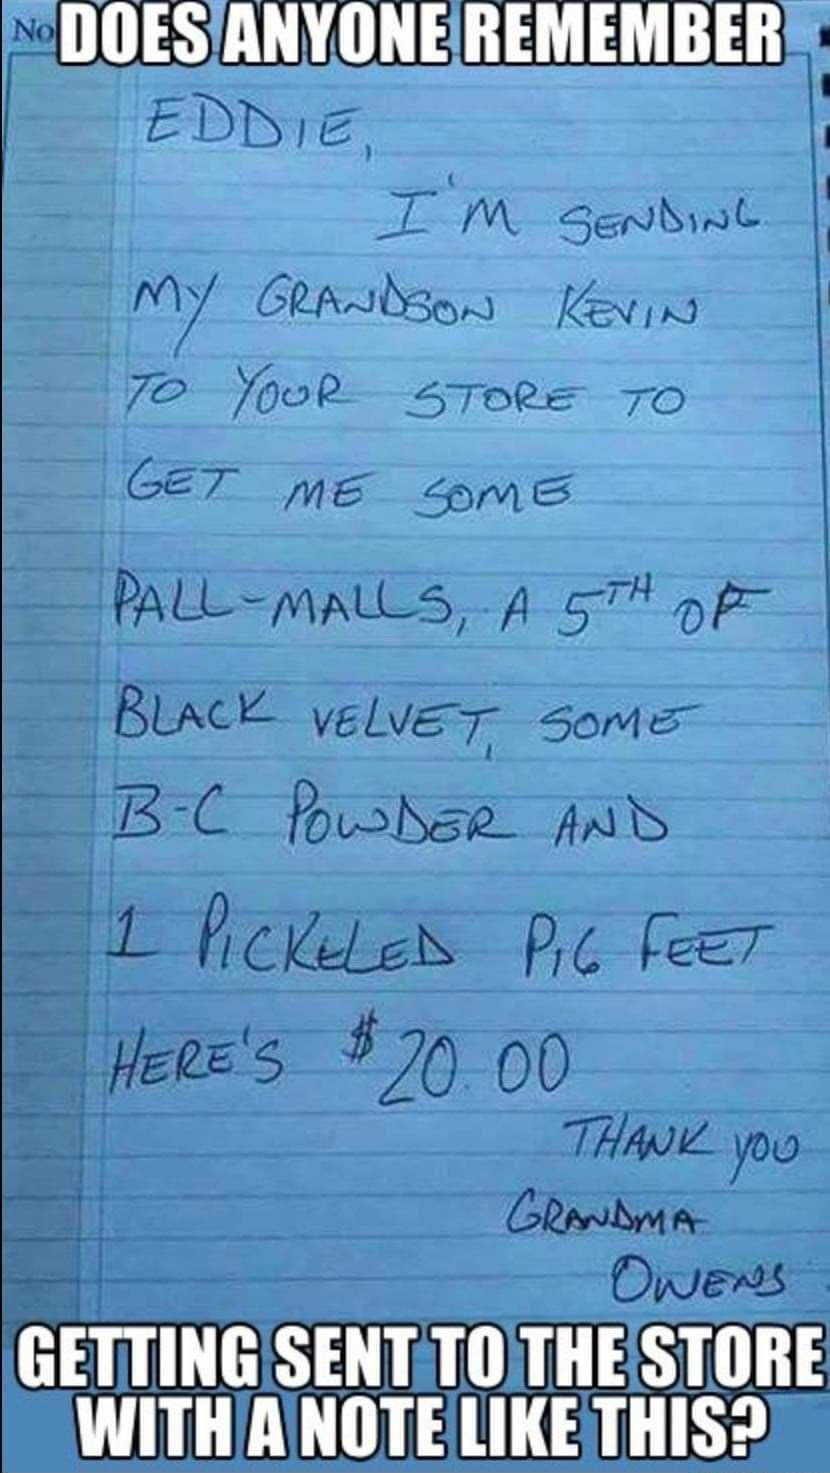 No
DOES ANYONE REMEMBER
EDDIE,
I'M SENDING
MY GRANDSON KEVIN
TO YOUR STORE TO
GET ME SOME
PALL-MALLS, A 5TH OF
BLACK VELVET, SOME
B-C POWDER AND
1 PICKELED PIG FEET
HERE'S $20.00
THANK YOU
GRANDMA
OWENS
GETTING SENT TO THE STORE
WITH A NOTE LIKE THIS?